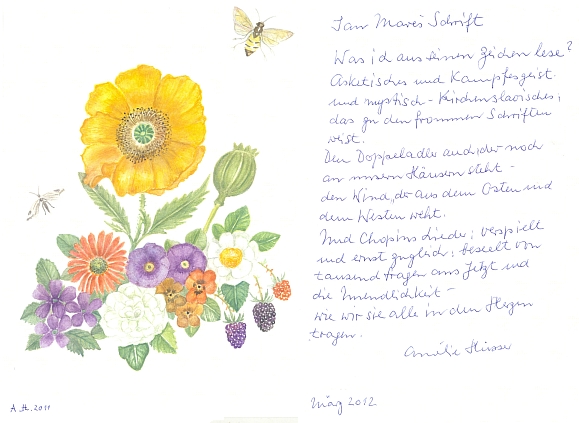 Jan Marès Schrift
Was ich aus seinen Zeichen lese?
Asketisches und Kampfesgeist
und mystisch-Kirchenslavisches,
das zu den frommen Schriften
weist.
Den Doppeladler auch, der noch
an unsern Häusern steht -
den Wind, der aus dem Osten und
dem Westen weht.
Und Chopins Lieder, verspielt
und ernst zugleich, beseelt von
tausend fragen ans Jetzt und
die Unendlichkeit -
wie wir sie alle in den Herzen
tragen.
Amélie
März 2012
A.H. 2011